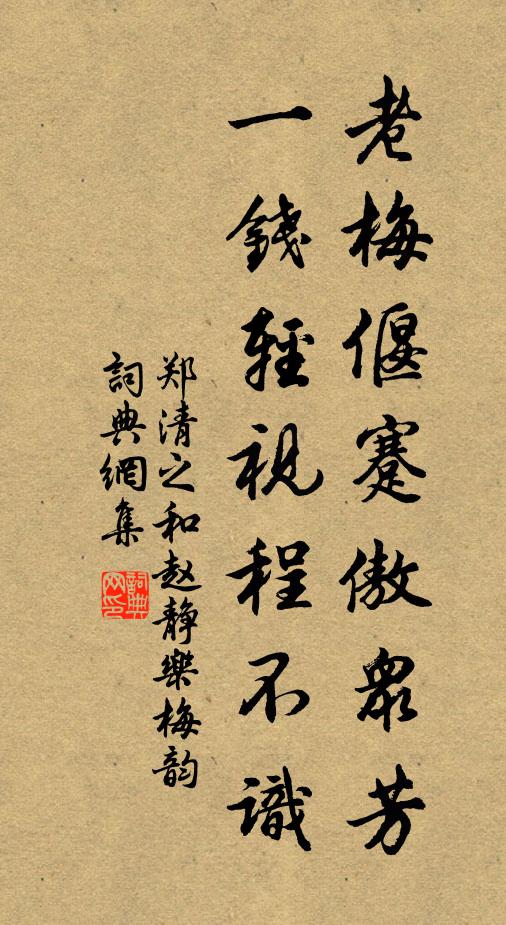 老梅偃蹇傲眾芳
一錢輕視程不識
郑清之和赵靜樂梅韵
詞典網集
詞典網印